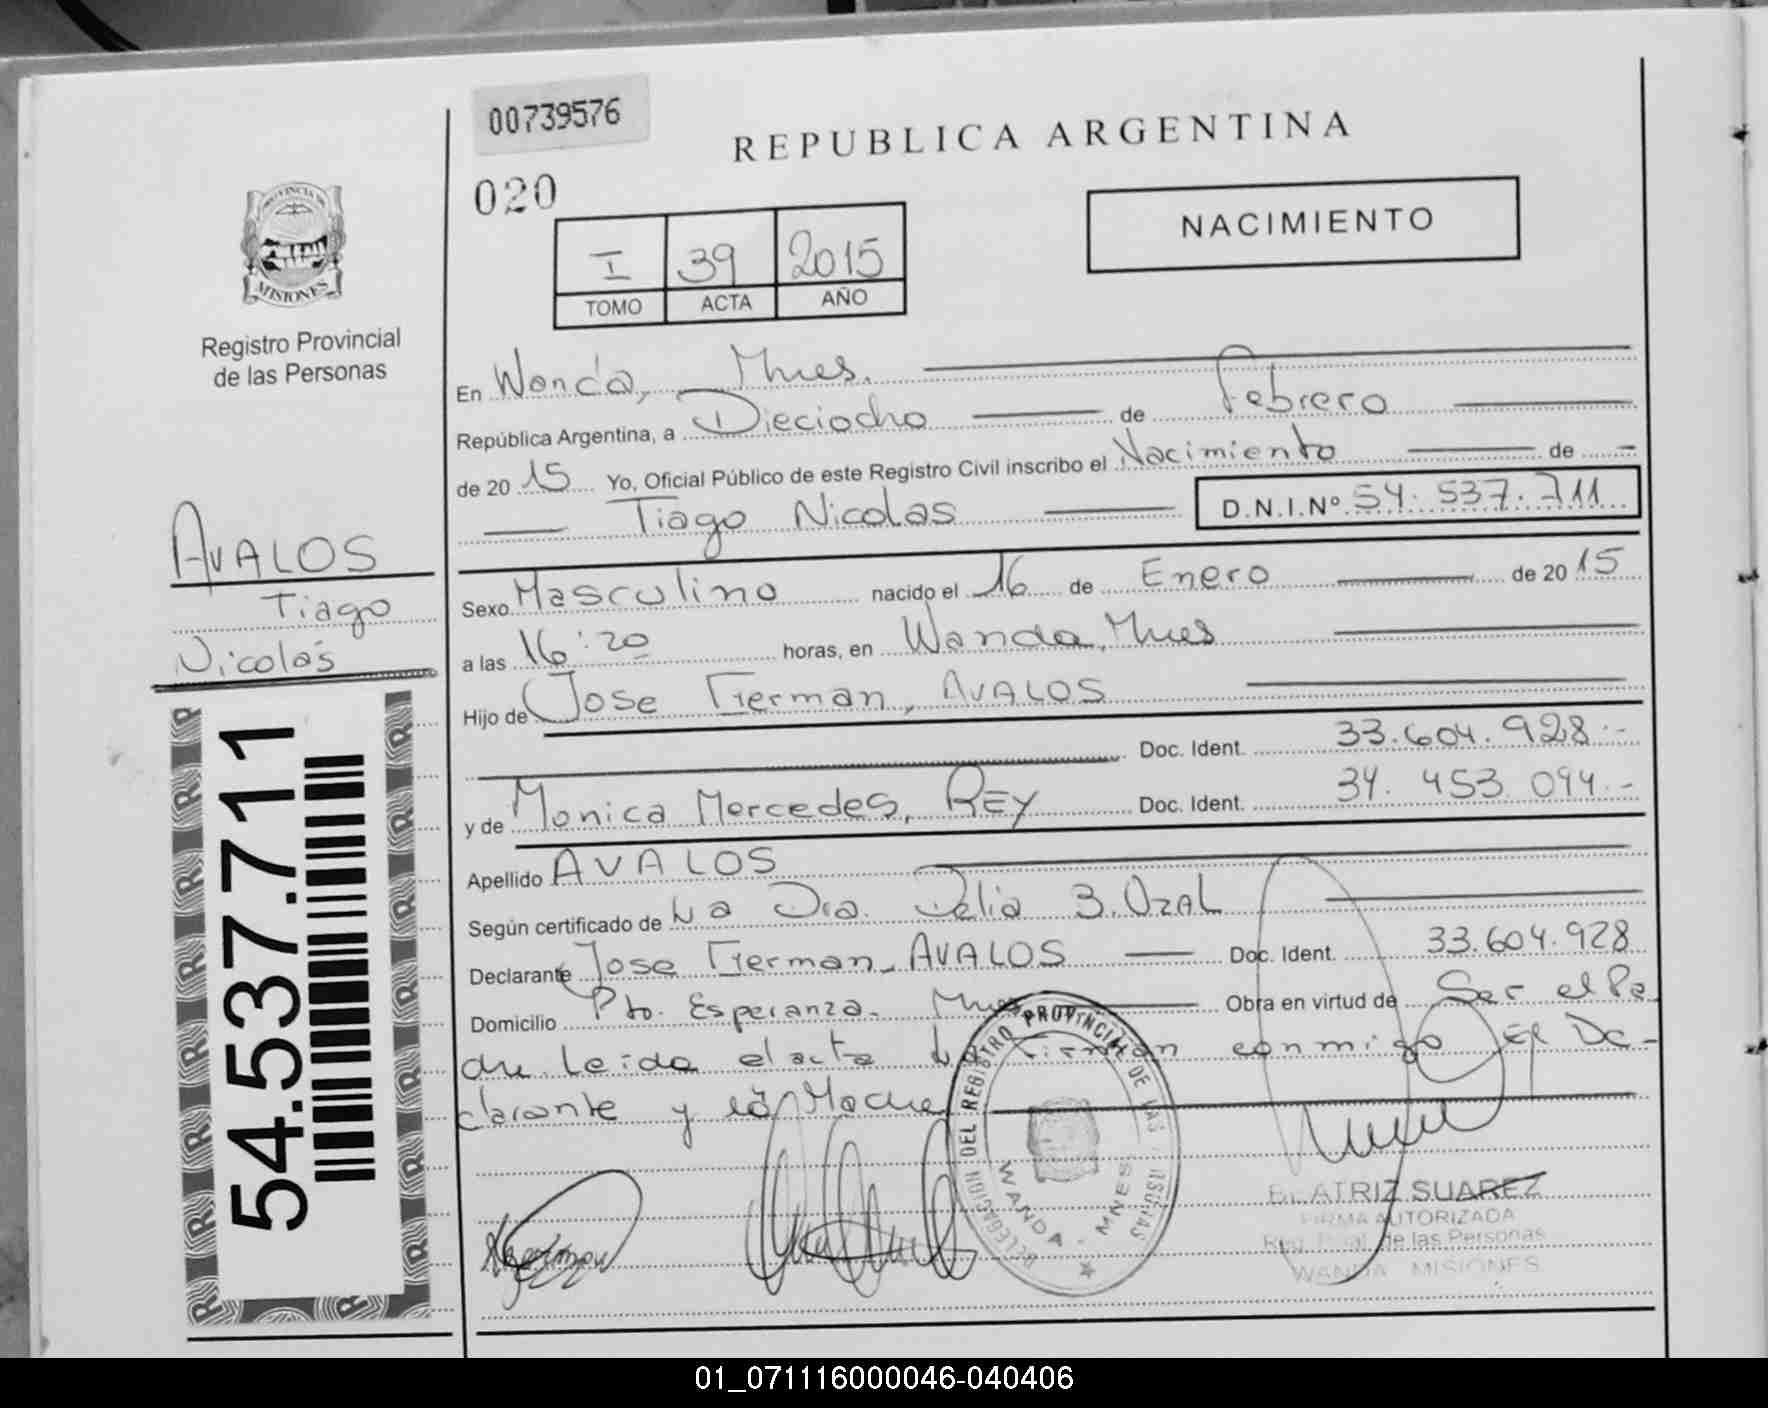 00739576
REPUBLICA ARGENTINA
020
NACIMIENTO
I 39 2015
TOMO ACTA AÑO
PROVINCIA DE
MISIONES
Registro Provincial
de las Personas
En Wanda, Mnes.
República Argentina, a Dieciocho de Febrero
de 2015 Yo, Oficial Público de este Registro Civil inscribo el Nacimiento de
Tiago Nicolas D.N.I.Nº 54.537.711
AVALOS
Tiago
Nicolás
Sexo Masculino nacido el 16 de Enero de 2015
a las 16:20 horas, en Wanda, Mnes
Hijo de Jose German, AVALOS
Doc. Ident. 33.604.928.-
y de Monica Mercedes, REY Doc. Ident. 34.453.094.-
Apellido AVALOS
Según certificado de La Dra. Delia B. OZAL
Declarante Jose German AVALOS Doc. Ident. 33.604.928
Domicilio Pto. Esperanza. Mnes Obra en virtud de Ser el Pa
dre Leida el acta la firman conmigo El De-
clarante y la Madre
54.537.711
DELEGACION DEL REGISTRO PROVINCIAL DE LAS
WANDA - MNES
BEATRIZ SUAREZ
FIRMA AUTORIZADA
Reg. de las Personas
WANDA MISIONES
01_071116000046-040406